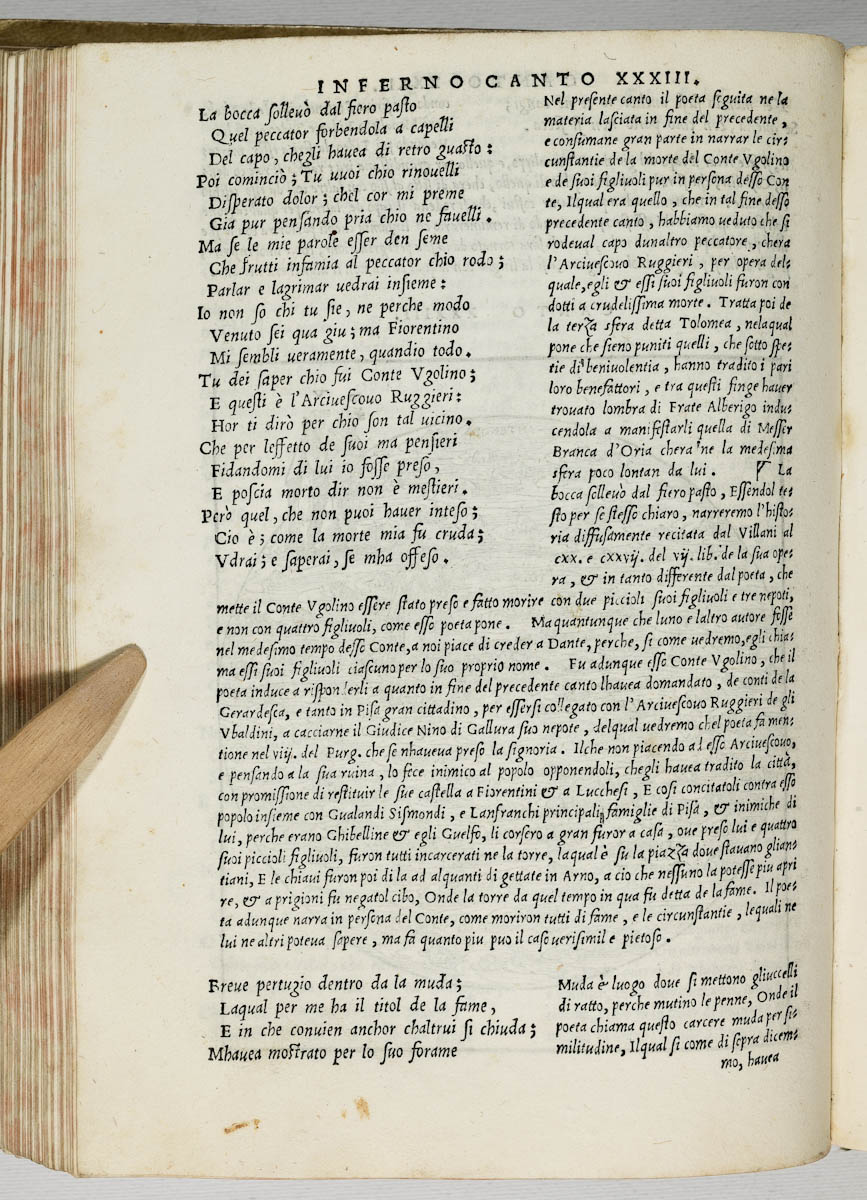 INFERNO CANTO XXXIII.
La bocca sollevò dal fiero pasto
Quel peccator forbendola a capelli
Del capo, chegli hauea di retro guasto:
Poi cominciò; Tu vuoi chio rinouelli
Disperato dolor; chel cor mi preme
Gia pur pensando pria chio ne fauelli.
Ma se le mie parole esser den seme
Che frutti infamia al peccator chio rodo;
Parlar e lagrimar uedrai insieme:
Io non so chi tu sie, ne perche modo
Venuto sei qua giu; ma Fiorentino
Mi sembli ueramente, quandio todo.
Tu dei saper chio fui Conte Vgolino;
E questi è l'Arciuescouo Ruggieri:
Hor ti dirò per chio son tal uicino.
Che per leffetto de suoi ma pensieri
Fidandomi di lui io fosse preso,
E poscia morto dir non è mestieri.
Però quel, che non puoi hauer inteso;
Cio è; come la morte mia fu cruda;
Vdrai; e saperai, se mha offeso.
Nel presente canto il poeta seguita ne la
materia lasciata in fine del precedente,
e consumane gran parte in narrar le cir-
cunstantie de la morte del Conte Vgolino
e de suoi figliuoli pur in persona desso Con
te, Ilqual era quello, che in tal fine desso
precedente canto, habbiamo ueduto che si
rodeual capo dunaltro peccatore, chera
l'Arciuescouo Ruggieri, per opera del-
quale, egli & essi suoi figliuoli furon con
dotti a crudelissima morte. Tratta poi de
la terza sfera detta Tolomea, nelaqual
pone che sieno puniti quelli, che sotto spe-
tie di beniuolentia, hanno tradito i pari
loro benefattori, e tra questi finge hauer
trouato lombra di Frate Alberigo indu-
cendola a manifestarli quella di Messer
Branca d'Oria chera ne la medesima
sfera poco lontan da lui. La
bocca solleuò dal fiero pasto, Essendol te-
sto per se stesso chiaro, narreremo l'histo-
ria diffusamente recitata dal Villani al
cxx. e cxxvij. del vij. lib. de la sua ope-
ra, & in tanto differente dal poeta, che
mette il Conte Vgolino essere stato preso e fatto morire con due piccioli suoi figliuoli e tre nepoti,
e non con quattro figliuoli, come esso poeta pone. Ma quantunque che luno e laltro autore fosse
nel medesimo tempo desso Conte, a noi piace di creder a Dante, perche, si come uedremo, egli chia-
ma essi suoi figliuoli ciascuno per lo suo proprio nome. Fu adunque esso Conte Vgolino, che il
poeta induce a risponderli a quanto in fine del precedente canto lhauea domandato, de conti de la
Gerardesca, e tanto in Pisa gran cittadino, per essersi collegato con l'Arciuescouo Ruggieri de gli
Vbaldini, a cacciarne il Giudice Nino di Gallura suo nepote, delqual uedremo chel poeta fa men-
tione nel viij. del Purg. che se nhaueua preso la signoria. Ilche non piacendo ad esso Arciuescouo,
e pensando a la sua ruina, lo fece inimico al popolo opponendoli, chegli hauea tradito la città,
con promissione di restituir le sue castella a Fiorentini & a Lucchesi, E cosi concitatoli contra esso
popolo insieme con Gualandi Sismondi, e Lanfranchi principali famiglie di Pisa, & inimiche di
lui, perche erano Ghibelline & egli Guelfo, li corsero a gran furor a casa, oue preso lui e quattro
suoi piccioli figliuoli, furon tutti incarcerati ne la torre, laqual è su la piazza doue stauano glian-
tiani, E le chiaui furon poi di la ad alquanti di gettate in Arno, a cio che nessuno la potesse piu apri
re, & a prigioni fu negatol cibo, Onde la torre da quel tempo in qua fu detta de la fame. Il poe-
ta adunque narra in persona del Conte, come moriron tutti di fame, e le circunstantie, lequali ne
lui ne altri poteua sapere, ma fa quanto piu puo il caso uerisimil e pietoso.
Breue pertugio dentro da la muda;
Laqual per me ha il titol de la fame,
E in che conuien anchor chaltrui si chiuda;
Mhauea mostrato per lo suo forame
Muda è luogo doue si mettono gliuccelli
di ratto, perche mutino le penne, Onde il
poeta chiama questo carcere muda per si-
militudine, Ilqual si come di sopra dicem-
mo, hauea